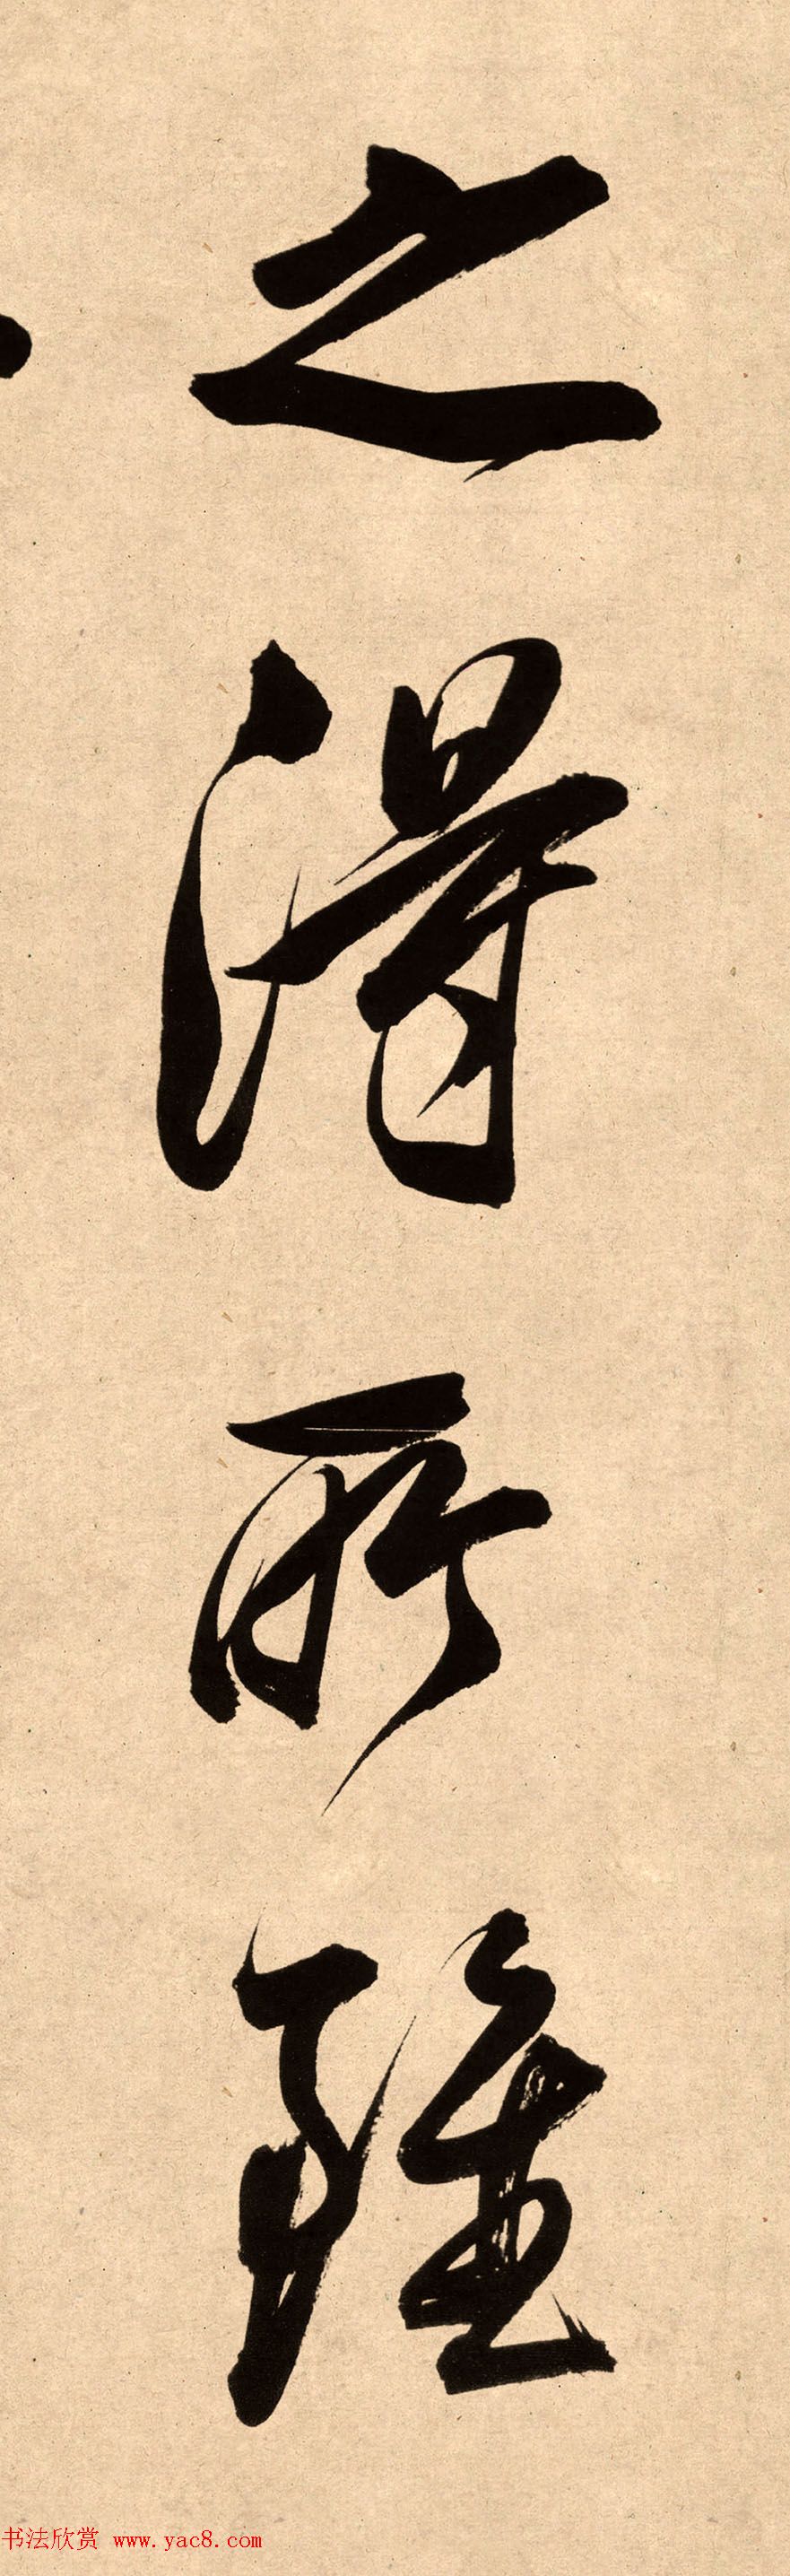 之得所
书法欣赏 www.yac8.com